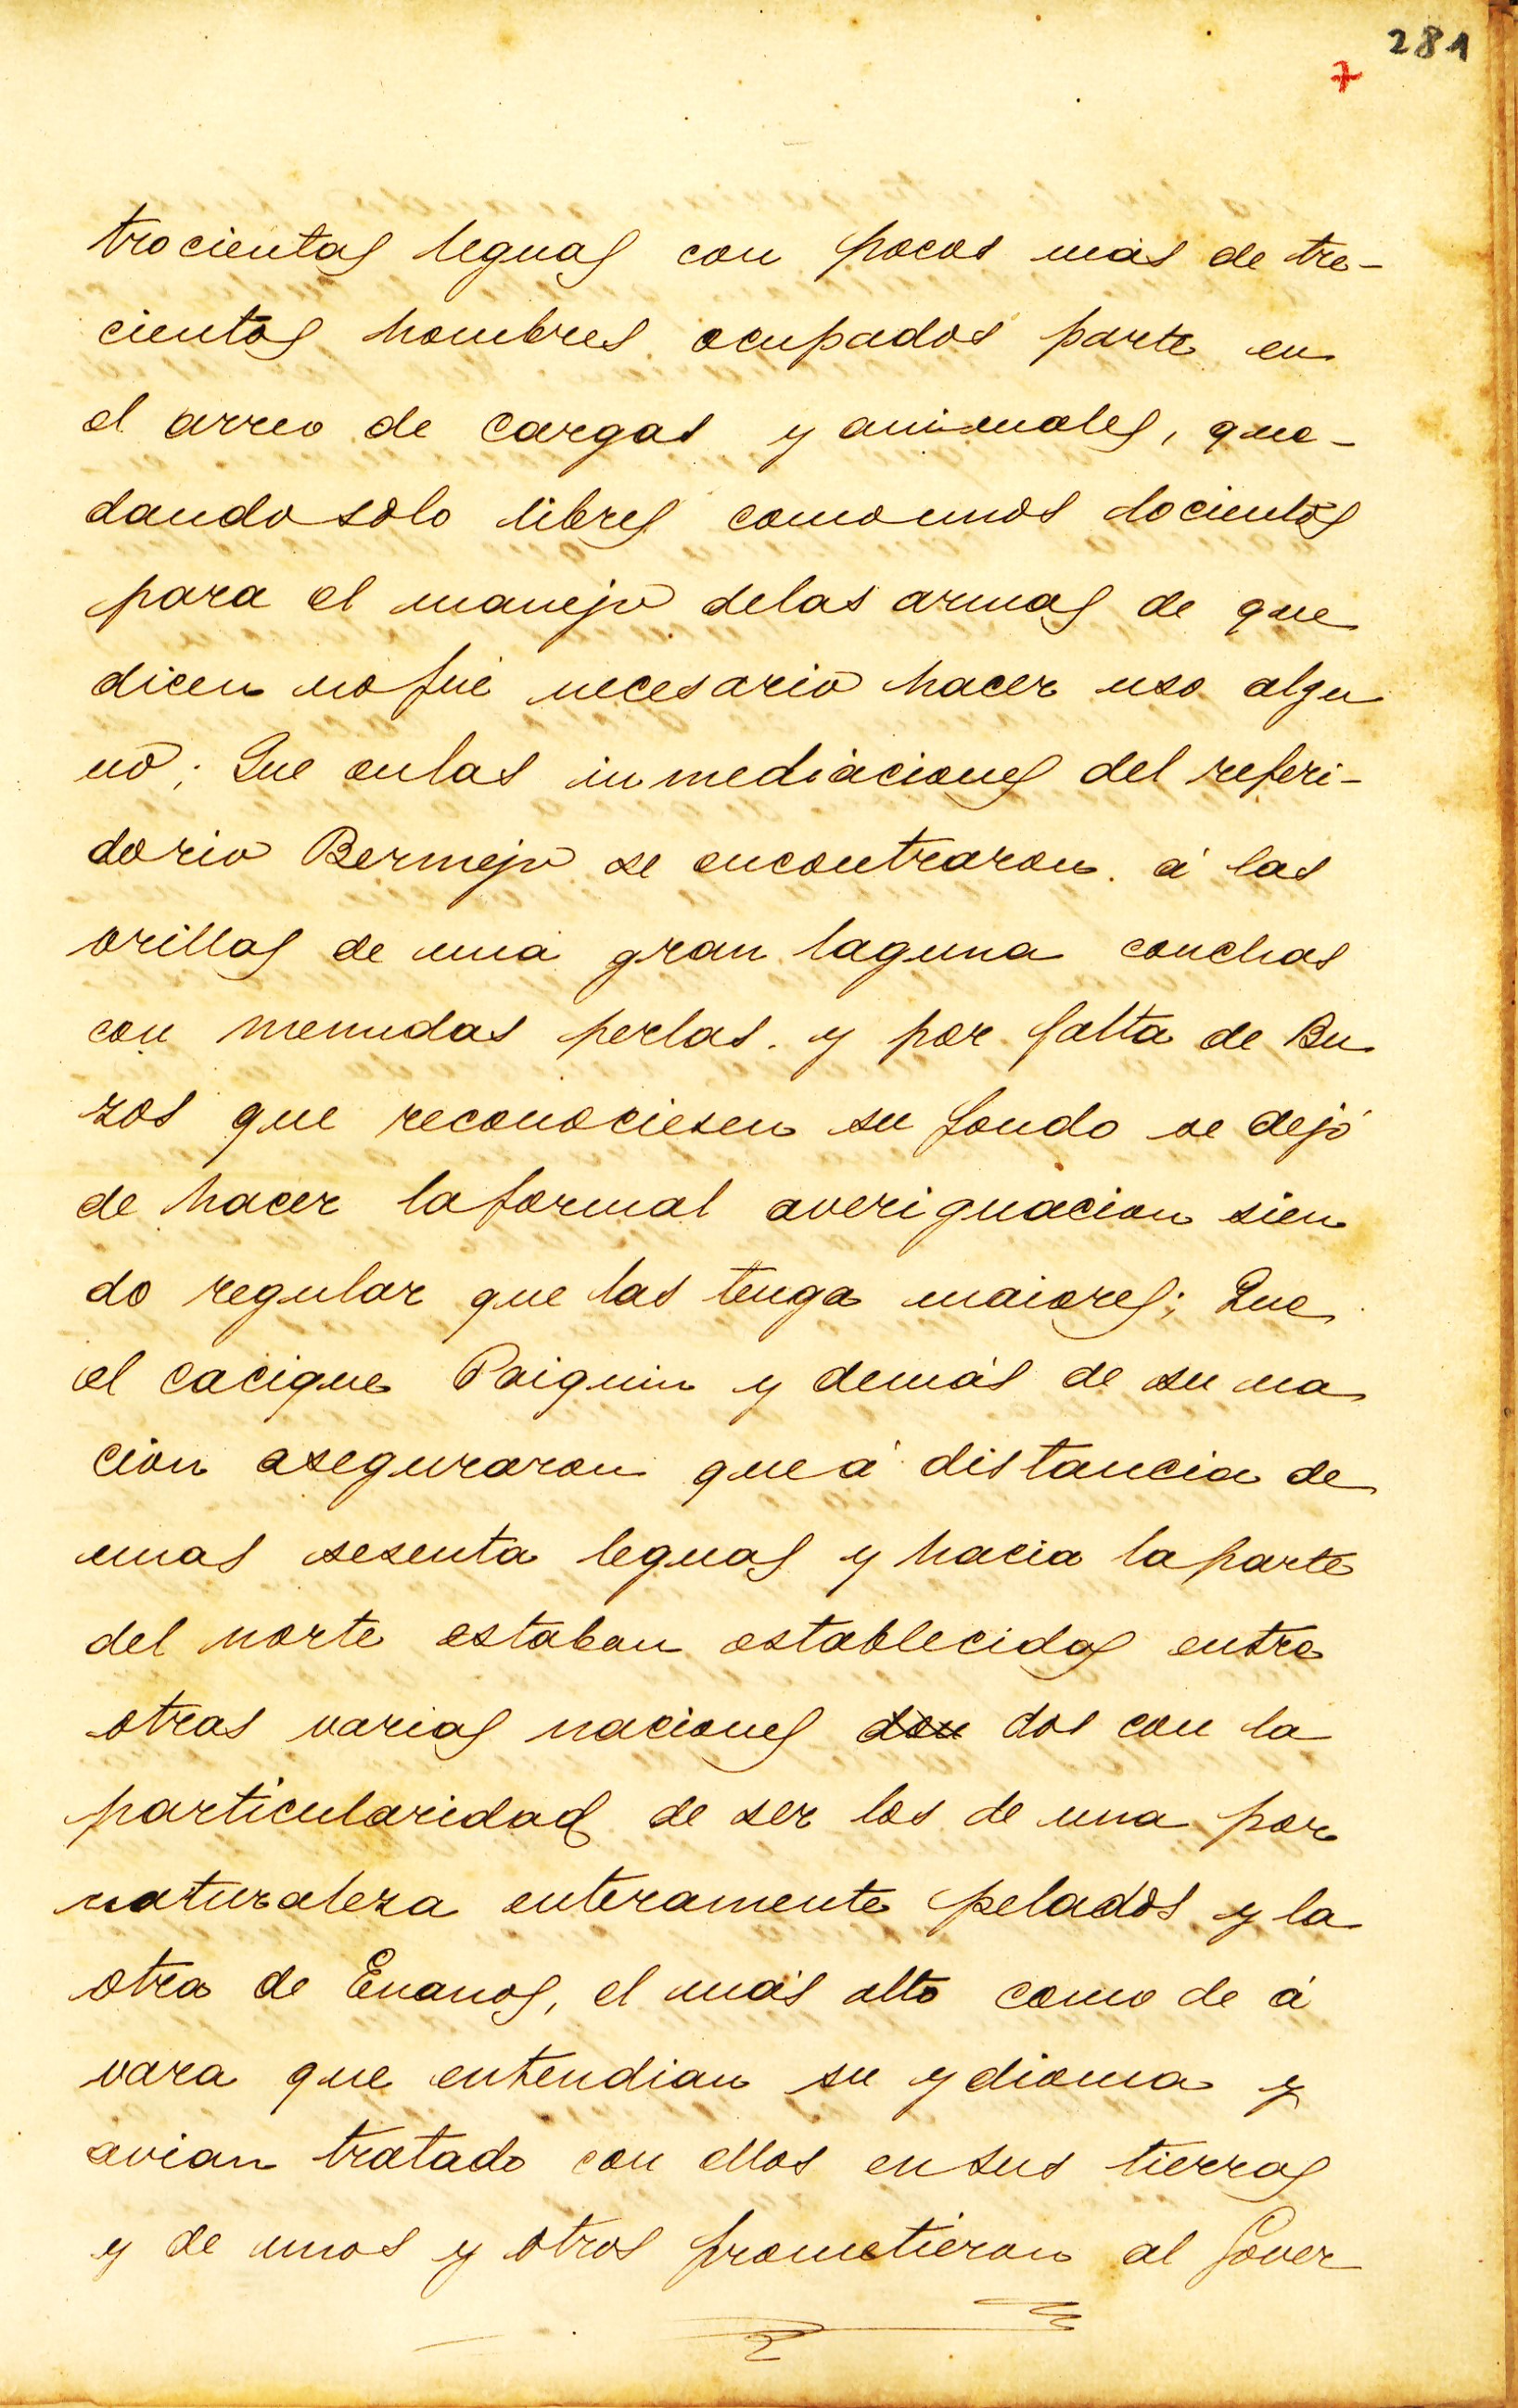 281
7
trocientas leguas con pocos más de tre-
cientos hombres ocupados parte en
el arreo de cargas y animales, que-
dando solo libres como unos docientos
para el manejo delas armas de que
dicen no fué necesario hacer uso algu
no; Que enlas inmediaciones del referi-
dorio Bermejo se encontraron á las
orillas de una gran laguna conchas
con menudas perlas. y por falta de Bu
zos que reconociesen su fondo se dejó
de hacer laformal averiguacion sien
do regular que las tenga maiores; Que
el cacique Paiquin y demás de su na
cion aseguraron que á distancia de
unas sesenta leguas y hacia laparte
del norte estaban establecidas entre
otras varias naciones don dos con la
particularidad de ser los de una por
naturaleza enteramente pelados y la
otra de Enanos, el más alto como de á
vara que entendian su ydioma y
avian tratado con ellos ensus tierras
y de unos y otros prometieron al Gover